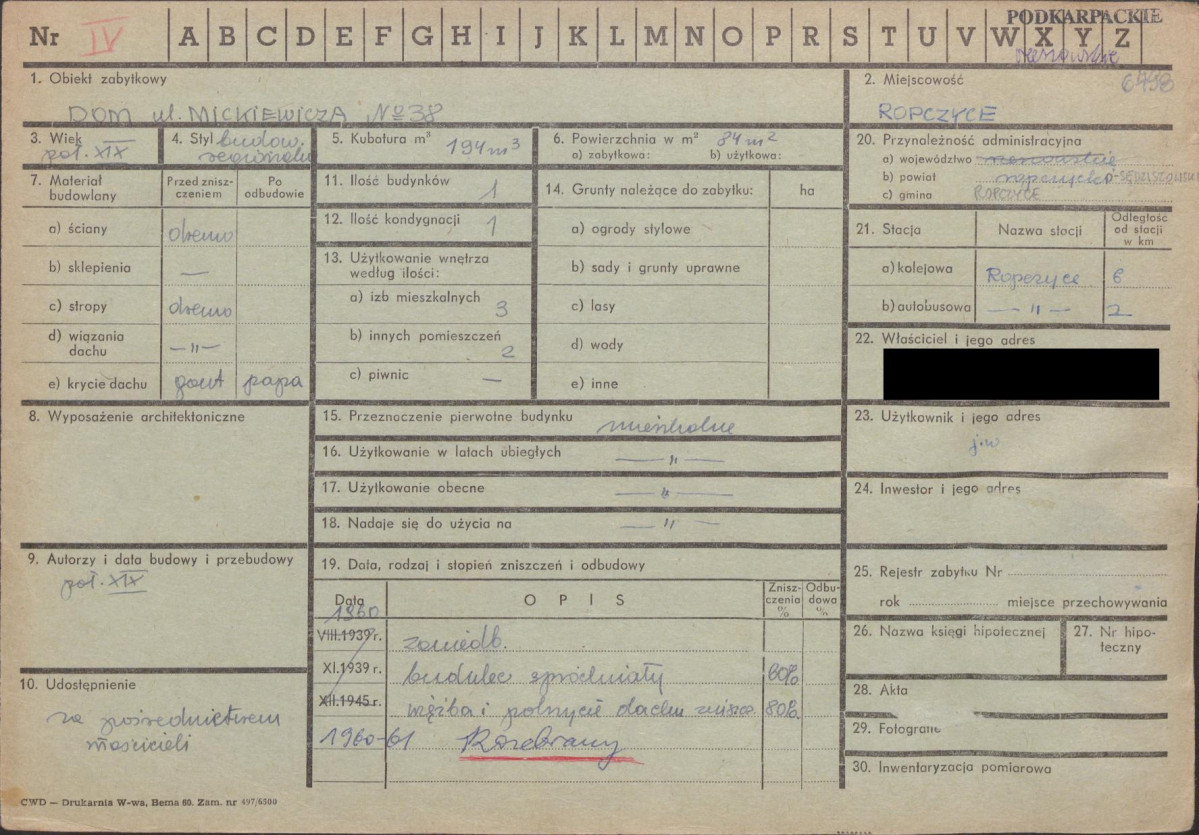 PODKARPACKIE
Nr IV A B C D E F G H I J K L M N O P R S T U V W X Y Z
1. Obiekt zabytkowy
DOM ul. MICKIEWICZA No 38
2. Miejscowość
ROPCZYCE
3. Wiek
poł. XIX
4. Styl budow.
5. Kubatura m³ 194 m³
6. Powierzchnia w m² 84 m²
a) zabytkowa: b) użytkowa:
7. Materiał budowlany
Przed zniszczeniem
Po odbudowie
a) ściany drewno
b) sklepienia —
c) stropy drewno
d) wiązania dachu —"—
e) krycie dachu gont papa
8. Wyposażenie architektoniczne
9. Autorzy i data budowy i przebudowy
poł. XIX
10. Udostępnienie
za pośrednictwem
właścicieli
11. Ilość budynków 1
12. Ilość kondygnacji 1
13. Użytkowanie wnętrza
według ilości:
a) izb mieszkalnych 3
b) innych pomieszczeń
2
c) piwnic —
14. Grunty należące do zabytku: ha
a) ogrody stylowe
b) sady i grunty uprawne
c) lasy
d) wody
e) inne
15. Przeznoczenie pierwotne budynku mieszkalne
16. Użytkowanie w latach ubiegłych —"—
17. Użytkowanie obecne —"—
18. Nadaje się do użycia na —"—
19. Data, rodzaj i stopień zniszczeń i odbudowy
Data O P I S Zniszczenia % Odbudowa %
1960
VIII.1939 r. zaniedb.
XI.1939 r. budulec spróchniały 60%
XII.1945 r. więźba i pokrycie dachu zniszcz. 80%
1960-61 Rozebrany
20. Przynależność administracyjna
a) województwo rzeszowskie
b) powiat ropczycko-SĘDZISZOWSKI
c) gmina ROPCZYCE
21. Stacja Nazwa stacji Odległość od stacji w km
a) kolejowa Ropczyce 6
b) autobusowa —"— 2
22. Właściciel i jego adres
23. Użytkownik i jego adres
j.w
24. Inwestor i jego adres
25. Rejestr zabytku Nr
rok miejsce przechowywania
26. Nazwa księgi hipotecznej
27. Nr hipoteczny
28. Akta
29. Fotografie
30. Inwentaryzacja pomiarowa
CWD — Drukarnia W-wa, Bema 60. Zam. nr 497/6500